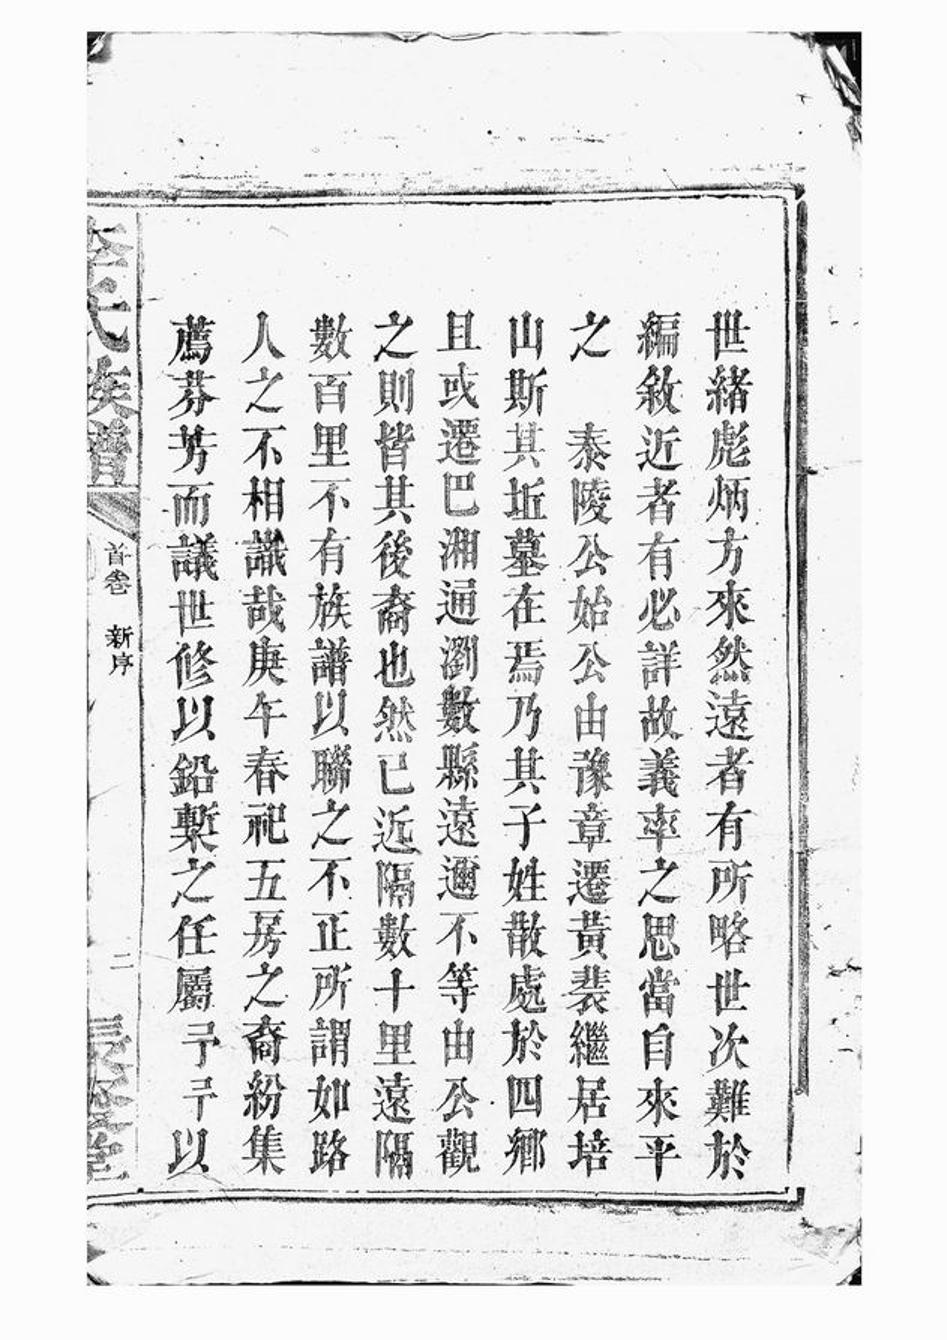 世緒彪炳方來然遠者有所略世次難於
編敘近者有必詳故義率之思當自來平
之　泰陵公始公由豫章遷黃裴繼居培
山斯其坵墓在焉乃其子姓散處於四鄉
且或遷巴湘通瀏數縣遠邇不等由公觀
之則皆其後裔也然已近隔數十里遠隔
數百里不有族譜以聯之不正所謂如路
人之不相識哉庚午春祀五房之裔紛集
薦芬芳而議世修以鉛槧之任屬予予以
李氏族譜
首卷　新序
二
堂